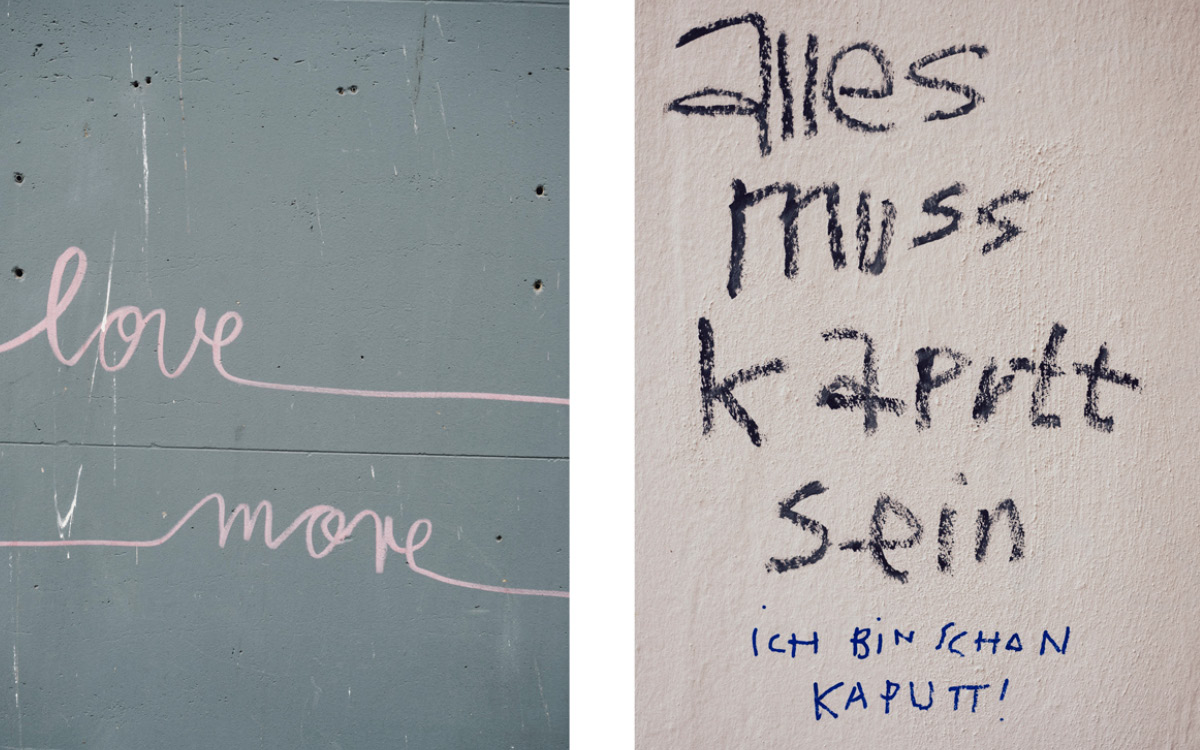 love
more
alles
muss
kaputt
sein
iCH BiN SCHON
KAPUTT!